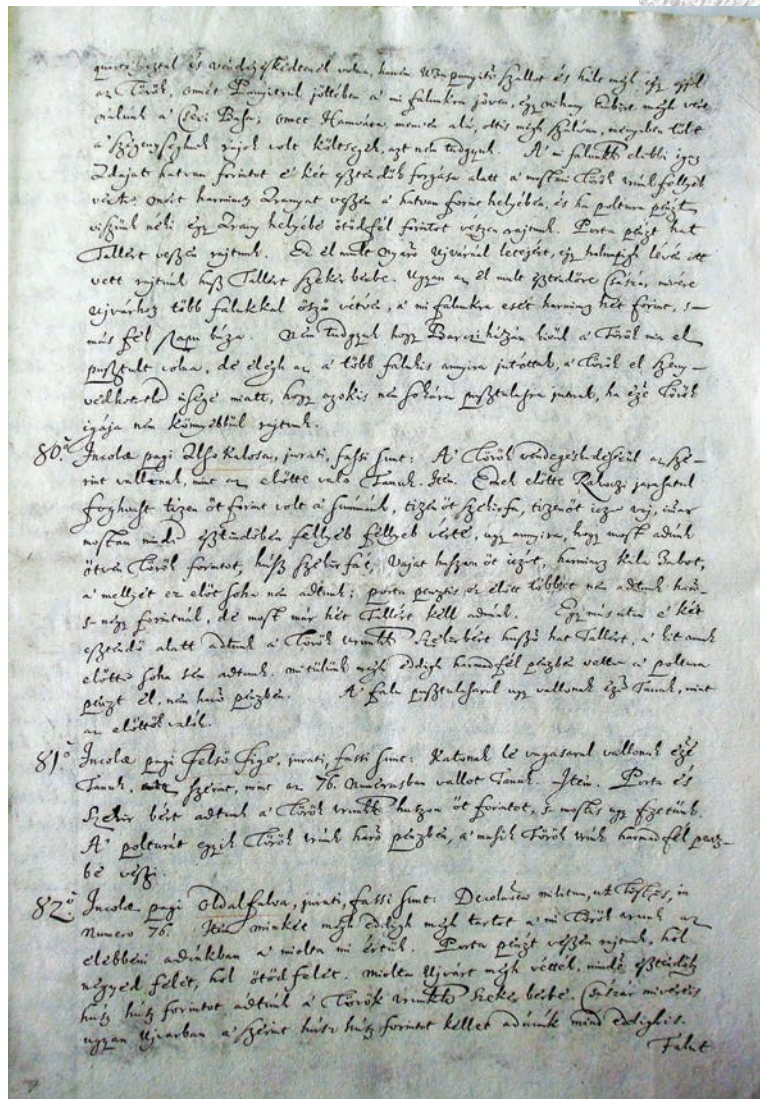 és vendégeskedtenek volna, hanem Uza panyitò szállot és hált megh egy éjjel
az Török, omét Panyitrul jöttében a' mi falunkra jöven, egy nihany Embert megh vert
nálunk a' Csévi Basa; omét Hamvára menven alá, ottis megh szálván, menyiben tölt
a' szegenysegnek rajok volt költsegek, azt nem tudgyuk. A' mi falunkk elebbi igaz
Adajat hatvan forintot é két esztendők forgása alatt a mostani Török Urunk fellyeb
verte, mert harmincz Aranyat veszen a' hatvan forint helyében, és ha poltura pénzt
viszünk néki egy Arany helyébe ötödfél forintot veszen rajtunk. Porta pénzt hat
Tallért veszen rajtunk. Ez el mult nyáro Ujvarnál letejért, egy holnapig lévén ott
vett rajtunk husz Tallért szekér bérbe. Ugyan az el mult esztendőre Császár mivere
Ujvarhoz több falukkal öszve vetvén, a' mi falunkra esett harmincz hét forint, s-
más fél buza. Nem tudgyuk hogy Barczi házán kivül a Török mia el
pusztult volna, de elegh az a több faluis annyira jutottak, a Török el szeny-
vedhetetlen igája miatt, hogy azokis nem sokára pusztulasra jutnak, ha eze Török
igája nem könnyebbül rajtunk.
80.a Incolae pagi Also Kalosa, jurati, fassi sunt: A' Török vendegeskedesérül az sze-
rint vallanak, mint az előtte valo Tanuk. Item. Ennek előtte Rakoczi
tizen öt forint volt a summánk, tizenöt szekerfa, tizenöt icze vaj, imar
mostan minden esztendőben fellyeb fellyeb verte, ugy annyira, hogy most adunk
ötven Török forintot, husz szekér fát, Vajat huszon öt iczét, harmincz Kila Zabot,
a' mellyet ez elöt soha nem adtunk; porta penztis öz elött többet nem adtunk háro-
s-negy forintnál, de most már hét Tallért kell adnunk. é két
esztendő alatt adtunk a Török Urunkk Szekerbért husz hat Tallért, a kit annak
előtte soha sem adtunk. mitülünk megh eddigh harmadfél pénzben vette a poltura
pénzt el, nem haro pénzben. A' falu pusztulasarul ugy vallonak ezen Tanuk, mint
az előttök valók.
81.o Incolae pagi Felső Fige, jurati, fassi sunt: Katonak le vagasarul vallonak ezen
Tanuk, szerint, mint az 76. Numerusban vallot Tanuk. Item. Porta és
Szekér bért adtunk a Török Urunkk huszon öt forintot, s-mostis ugy fizetünk.
A' polturát egyik Török Urunk haro pénzben, a' masik Török Urunk harmadfél penz-
be veszi.
82.o Incolae pagi Oldalfalva, jurati, fassi sunt: militum, ut Testes, in
Numero 76. Item minket megh eddigh megh tartot a mi Török Urunk az
elebbeni adónkban a miolta mi értük. Porta pénzt veszen rajtunk, hol
negyed felet, hol ötöd felet. miolta Ujvárt megh vettek, minden esztendőben
husz husz forintot adtunk a Török Urunkk Szeker bérbe. Császár miveréis
ugyan Ujvarban a' szerint husz husz forintot kellet adnunk mind eddighis.
Falut